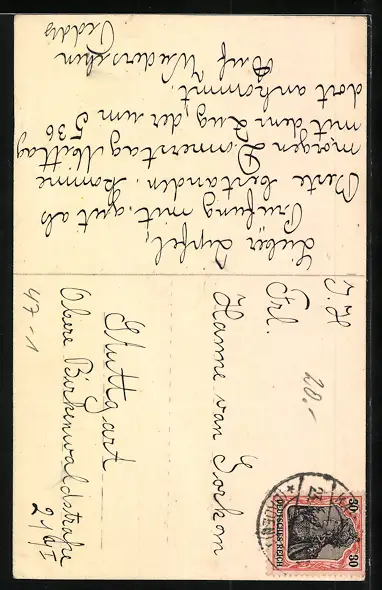 Lieber Zipfel,
Prüfung mit "gut" als
Beste bestanden. Komme
morgen Donnerstag Mittag
mit dem Zug, der um 5 36
dort ankommt.
Auf Wiedersehen
I. H
Frl.
Hanne van Gorkom
Stuttgart
Obere Birkenwaldstraße
47 - 1
20.-
DEUTSCHES REICH
30
30